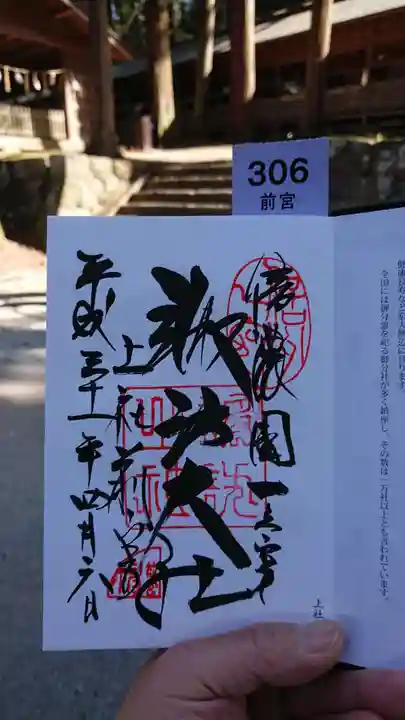 306
前宮
信濃國一之宮
諏訪大社
上社前宮
平成三十一年四月六日
全国には御分霊を祀る御分社が多く鎮座し、その数は一万社以上とも言われています。
上社